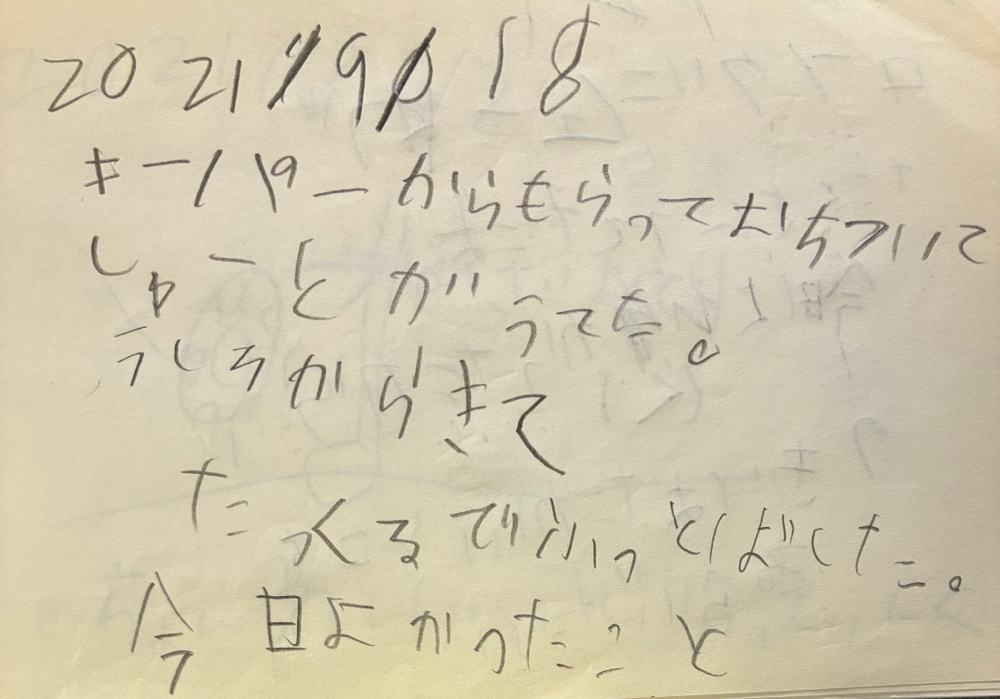 2021/9/18
キーパーからもらってたちついて
しゅーとがうてた。
うしろからきて
たっくるでふっとばした。
今日よかったこと